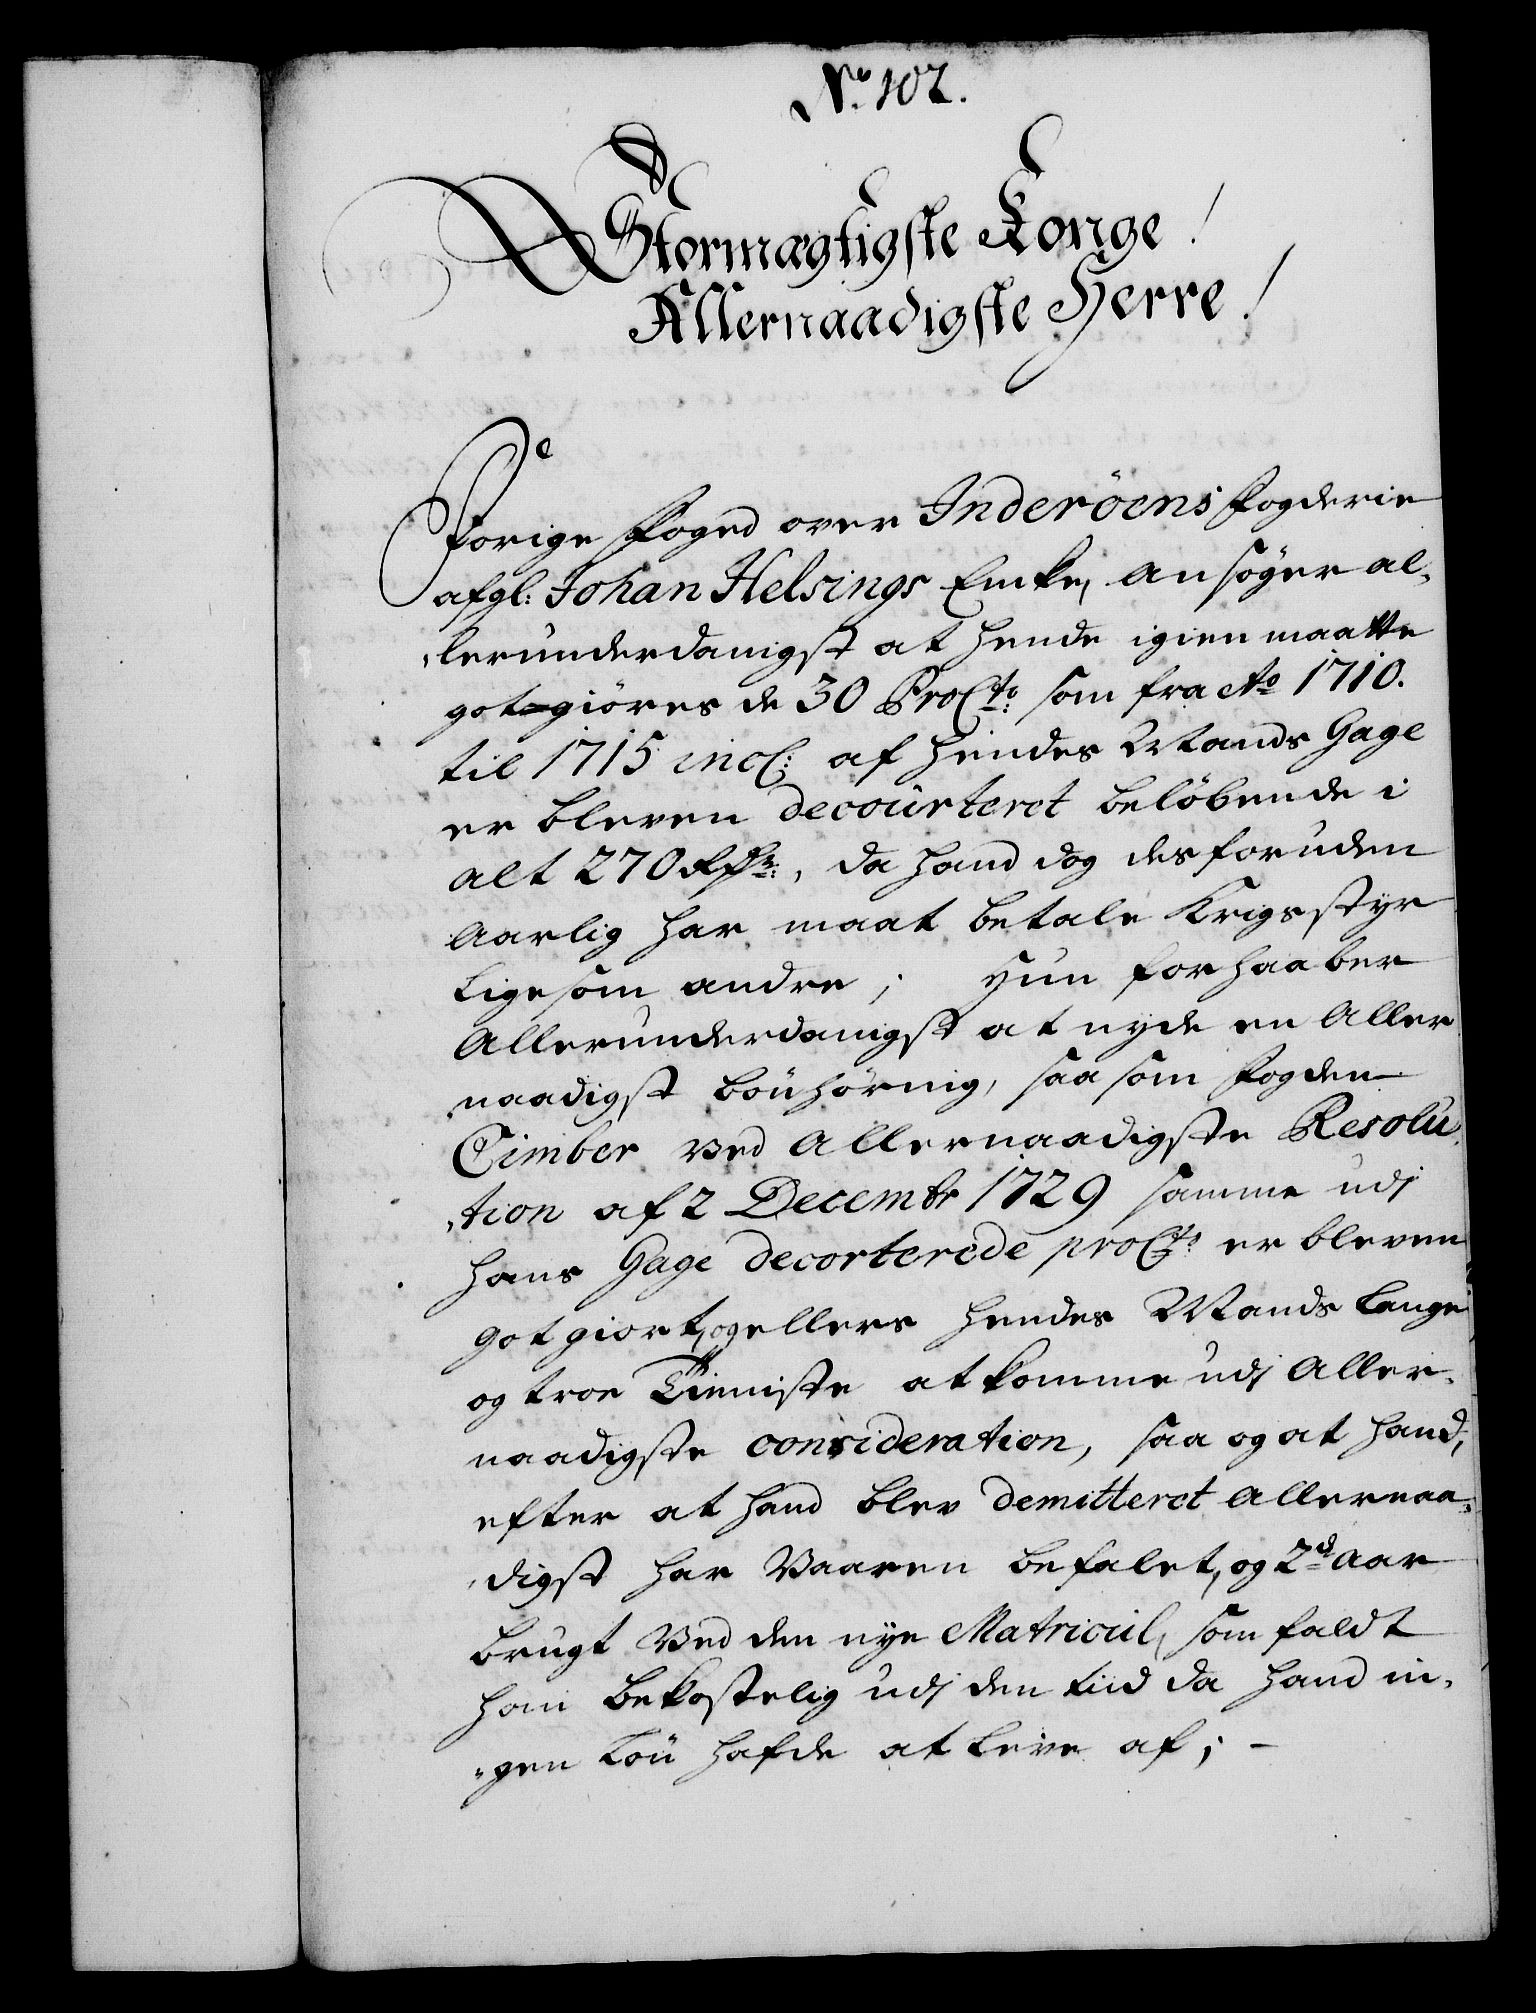 No. 102.
Stormægtigste Konge!
Allernaadigste Herre!
Forige Foged over Inderöens Fogderie
afgl: Johan Helsings Encke, ansøger al-
lerunderdanigst at hende igien maatte
gotgiöres de 30 ProCto: som fra Ao 1710.
til 1715 incl: af hendes Mands Gage
er bleven decourteret beløbende i
alt 270 Rdr:, da hand dog desforuden
Aarlig har maat betale Krigsstyr
ligesom andre; Hun forhaaber
Allerunderdanigst at nyde en Aller
naadigst bönhörning, saa som Fogden
Cimber ved Allernaadigste Resolu-
tion af 2 Decembr 1729 samme udj
hans Gage decorterede proCto: er bleven
gotgiort, og ellers hendes Mands lange
og troe Tieniste at komme udj Aller-
naadigste consideration, saa og at hand,
efter at hand blev demitteret Allernaa-
digst har Vaaren befalet, og 2de Aar
brugt Ved den nye Matricul, som faldt
ham bekostelig udj den tiid da hand in-
gen Lön hafde at leve af; -